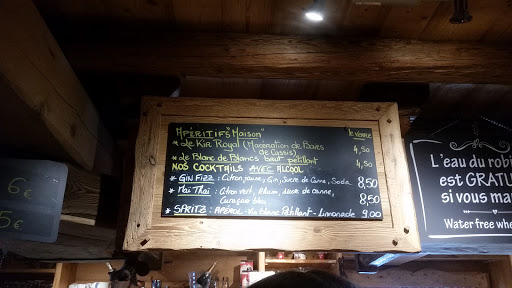 6€
5€
APÉRITIFS "MAISON"
le verre
* Le Kir Royal (Macération de Baies de Cassis) 4,50
* Le Blanc de Blancs brut pétillant 4,50
NOS COCKTAILS AVEC ALCOOL
* GIN FIZZ : Citron jaune, Gin, Sucre de Canne, Soda 8,50
* Maï Thaï : Citron vert, Rhum, sucre de canne,
Curaçao bleu 8,50
* SPRITZ : APEROL - Vin blanc Pétillant - Limonade 9,00
L'eau du robi
est GRATU
si vous ma
Water free whe